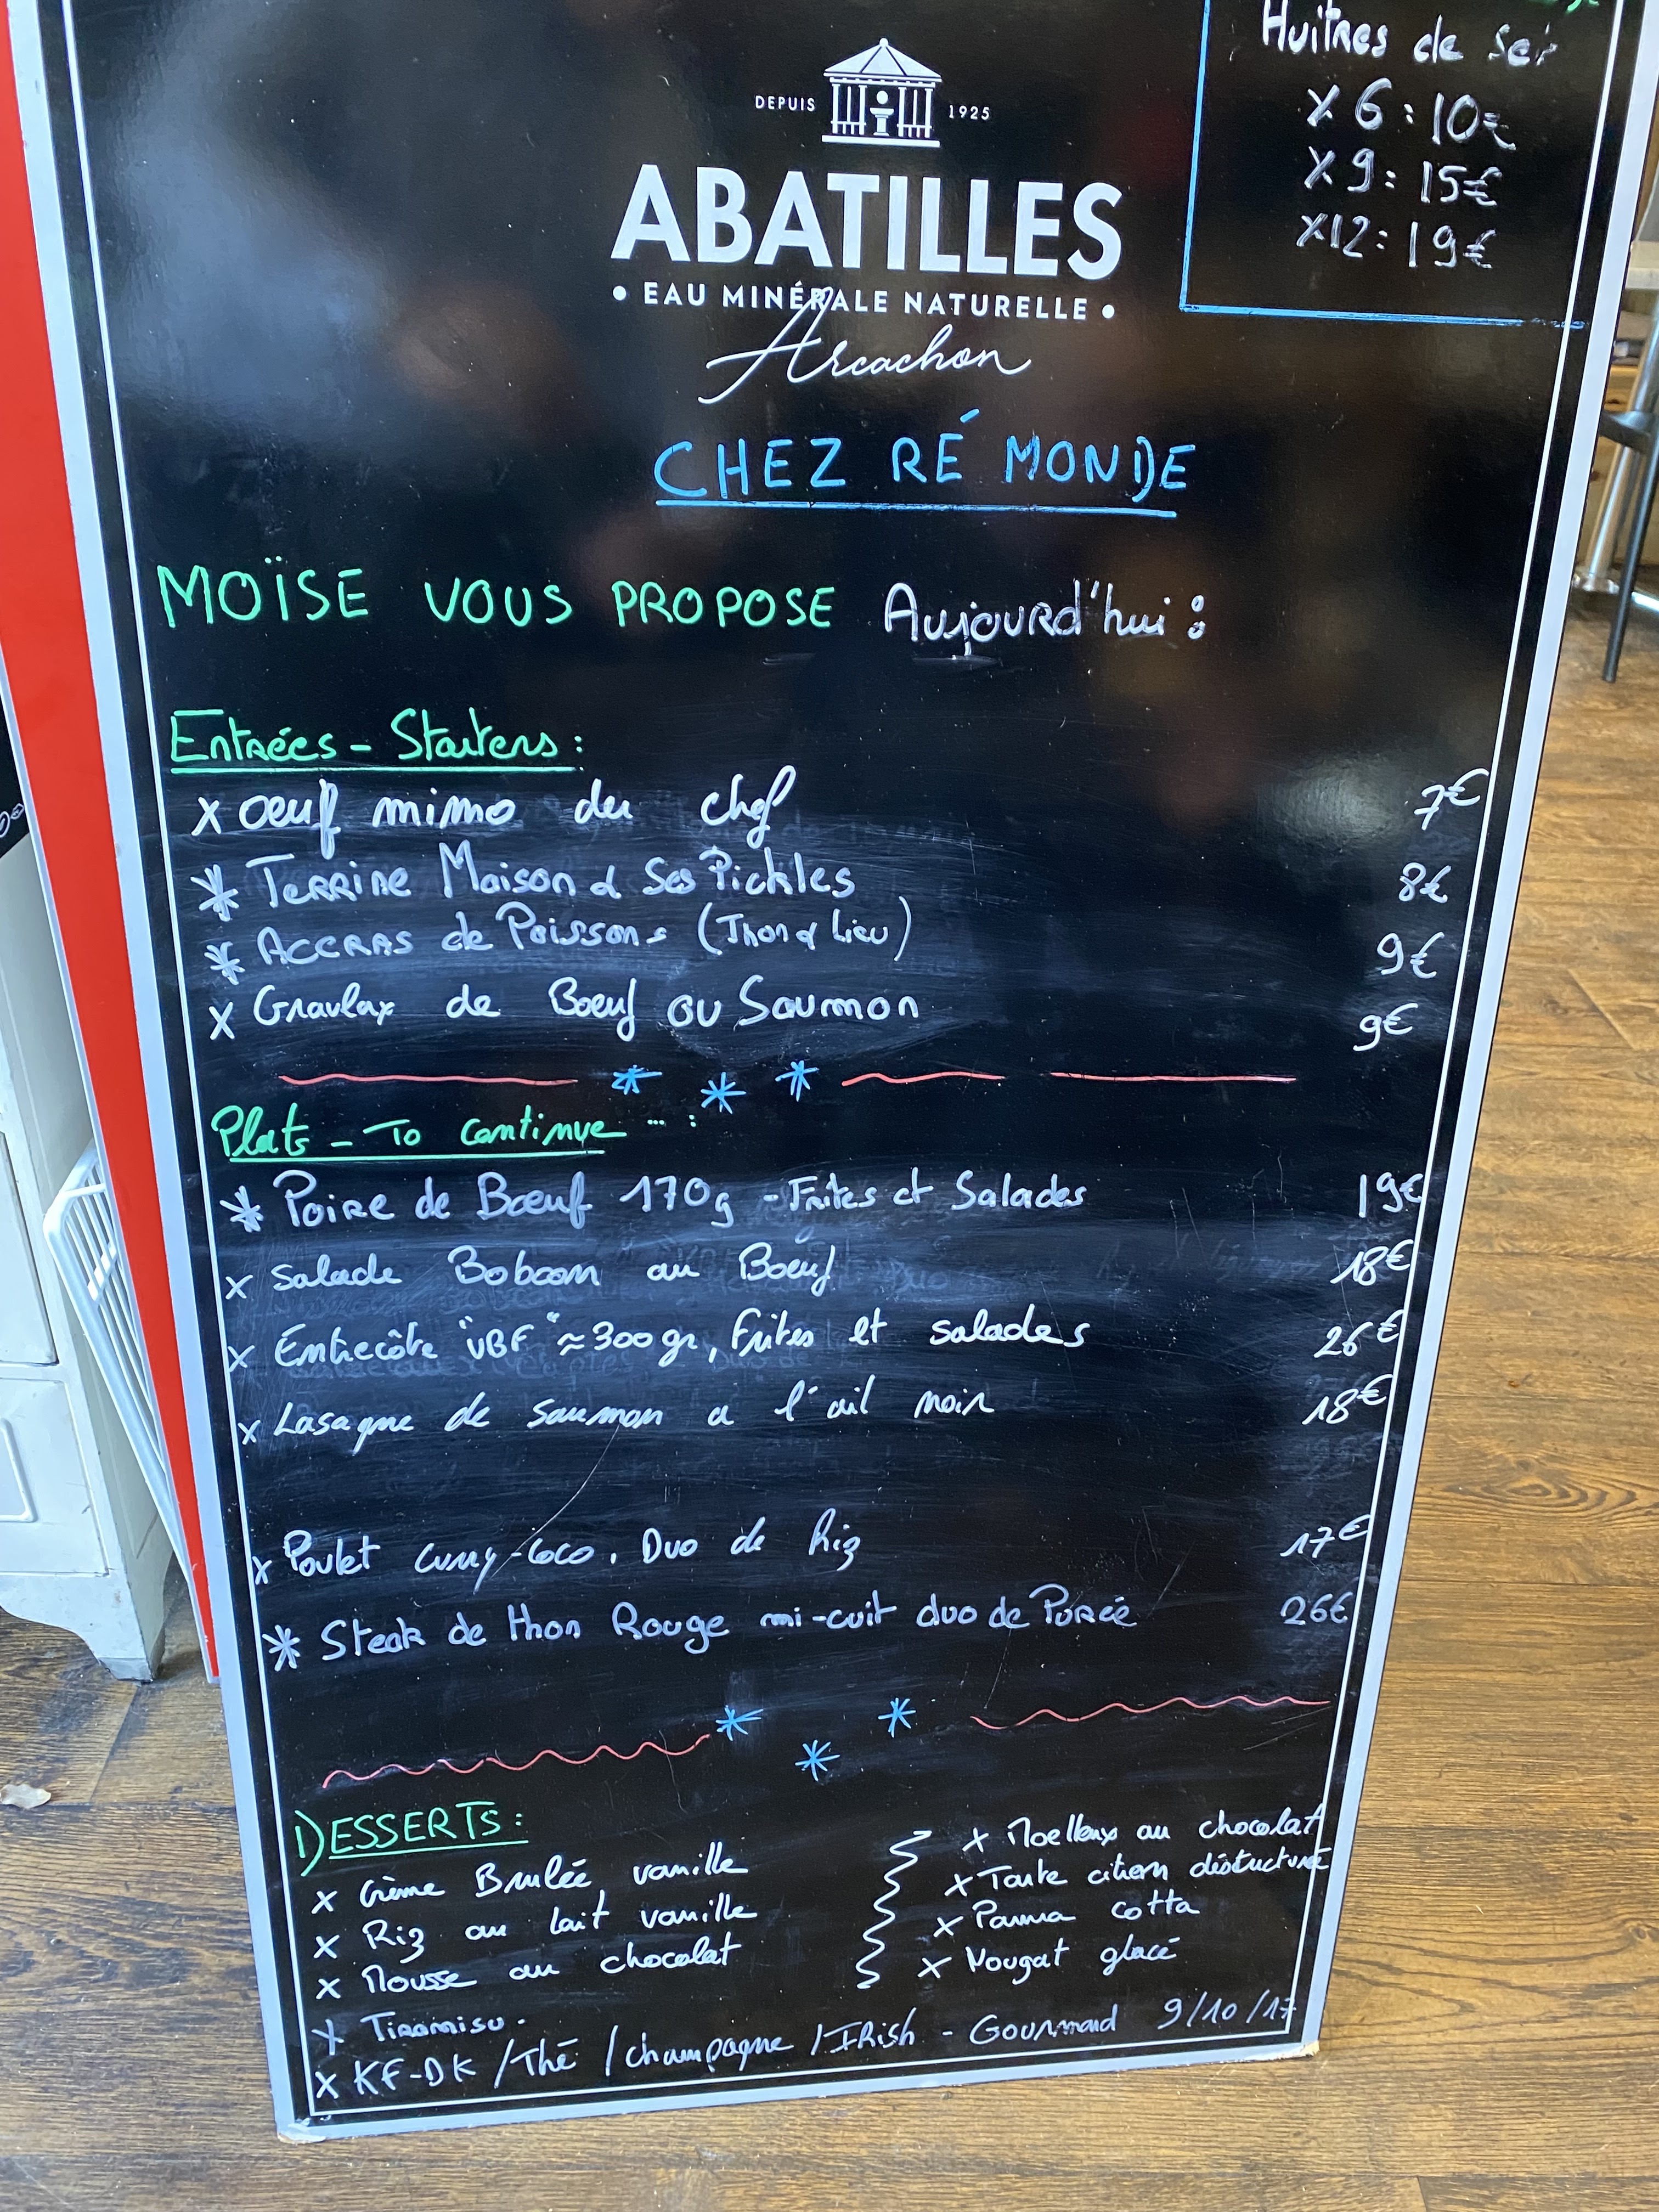 Huîtres de
x 6 : 10€
x 9 : 15€
x12 : 19€
DEPUIS 1925
ABATILLES
• EAU MINÉRALE NATURELLE •
Arcachon
CHEZ RÉ MONDE
MOÏSE VOUS PROPOSE Aujourd'hui :
Entrées - Starters :
x oeuf mimo du chef 7€
* Terrine Maison & Ses Pickles 8€
* Accras de Poissons (Thon & Lieu) 9€
x Gravlax de Boeuf ou Saumon 9€
* * *
Plats - To continue ... :
* Poire de Bœuf 170g - Frites et Salades 19€
x Salade Boboom au Boeuf 18€
x Entrecôte "VBF" ≈ 300gr, frites et salades 26€
x Lasagne de saumon a l'ail noir 18€
x Poulet curry-coco. Duo de Riz 17€
* Steak de thon Rouge mi-cuit duo de Purée 26€
* * *
DESSERTS :
x Crème Brulée vanille
x Riz au lait vanille
x Mousse au chocolat
x Tiramisu.
x Moelleux au chocolat
x Tarte citron déstucturé
x Panna cotta
x Nougat glacé
x KF-DK / Thé / champagne / IRish - Gourmand 9/10/17